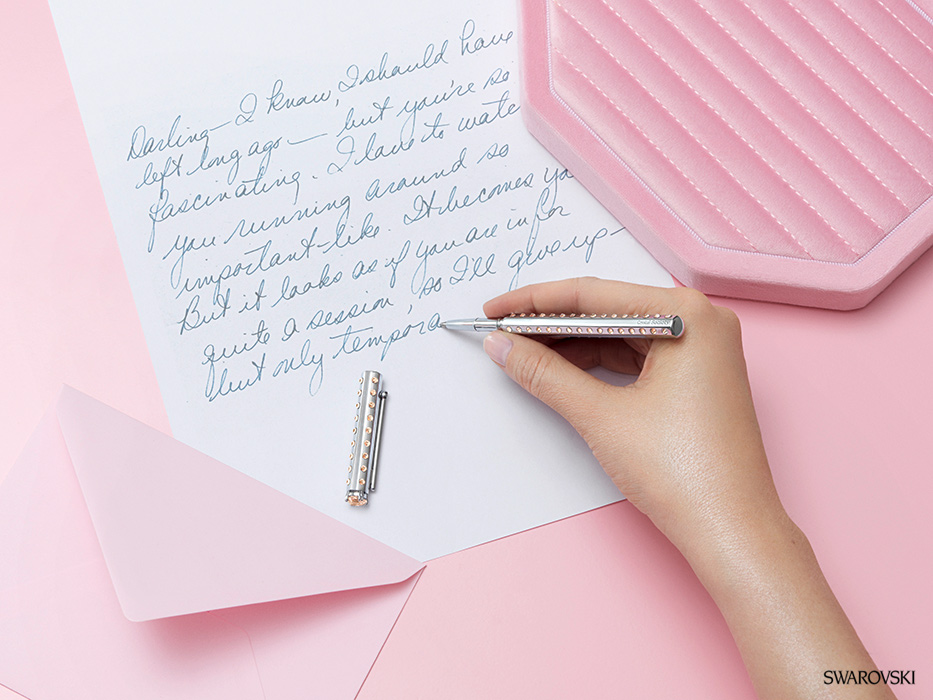 Darling— I know, I should have
left long ago — but you're so
fascinating. I love to watc
you running around so
important-like. It becomes yo
But it looks as if you are in for
quite a session, so I'll give up—
but only tempora
SWAROVSKI